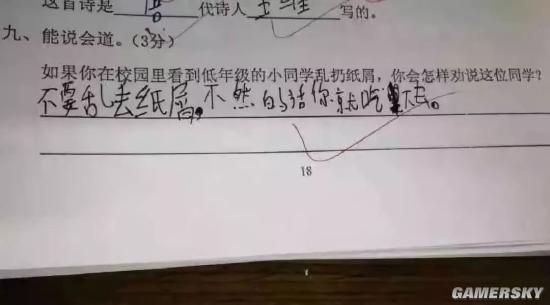 这首诗是 唐 代诗人 王维 写的。
九、能说会道。(3分)
如果你在校园里看到低年级的小同学乱扔纸屑，你会怎样劝说这位同学？
不要乱丢纸屑。不然的话你就吃下去。
18
GAMERSKY